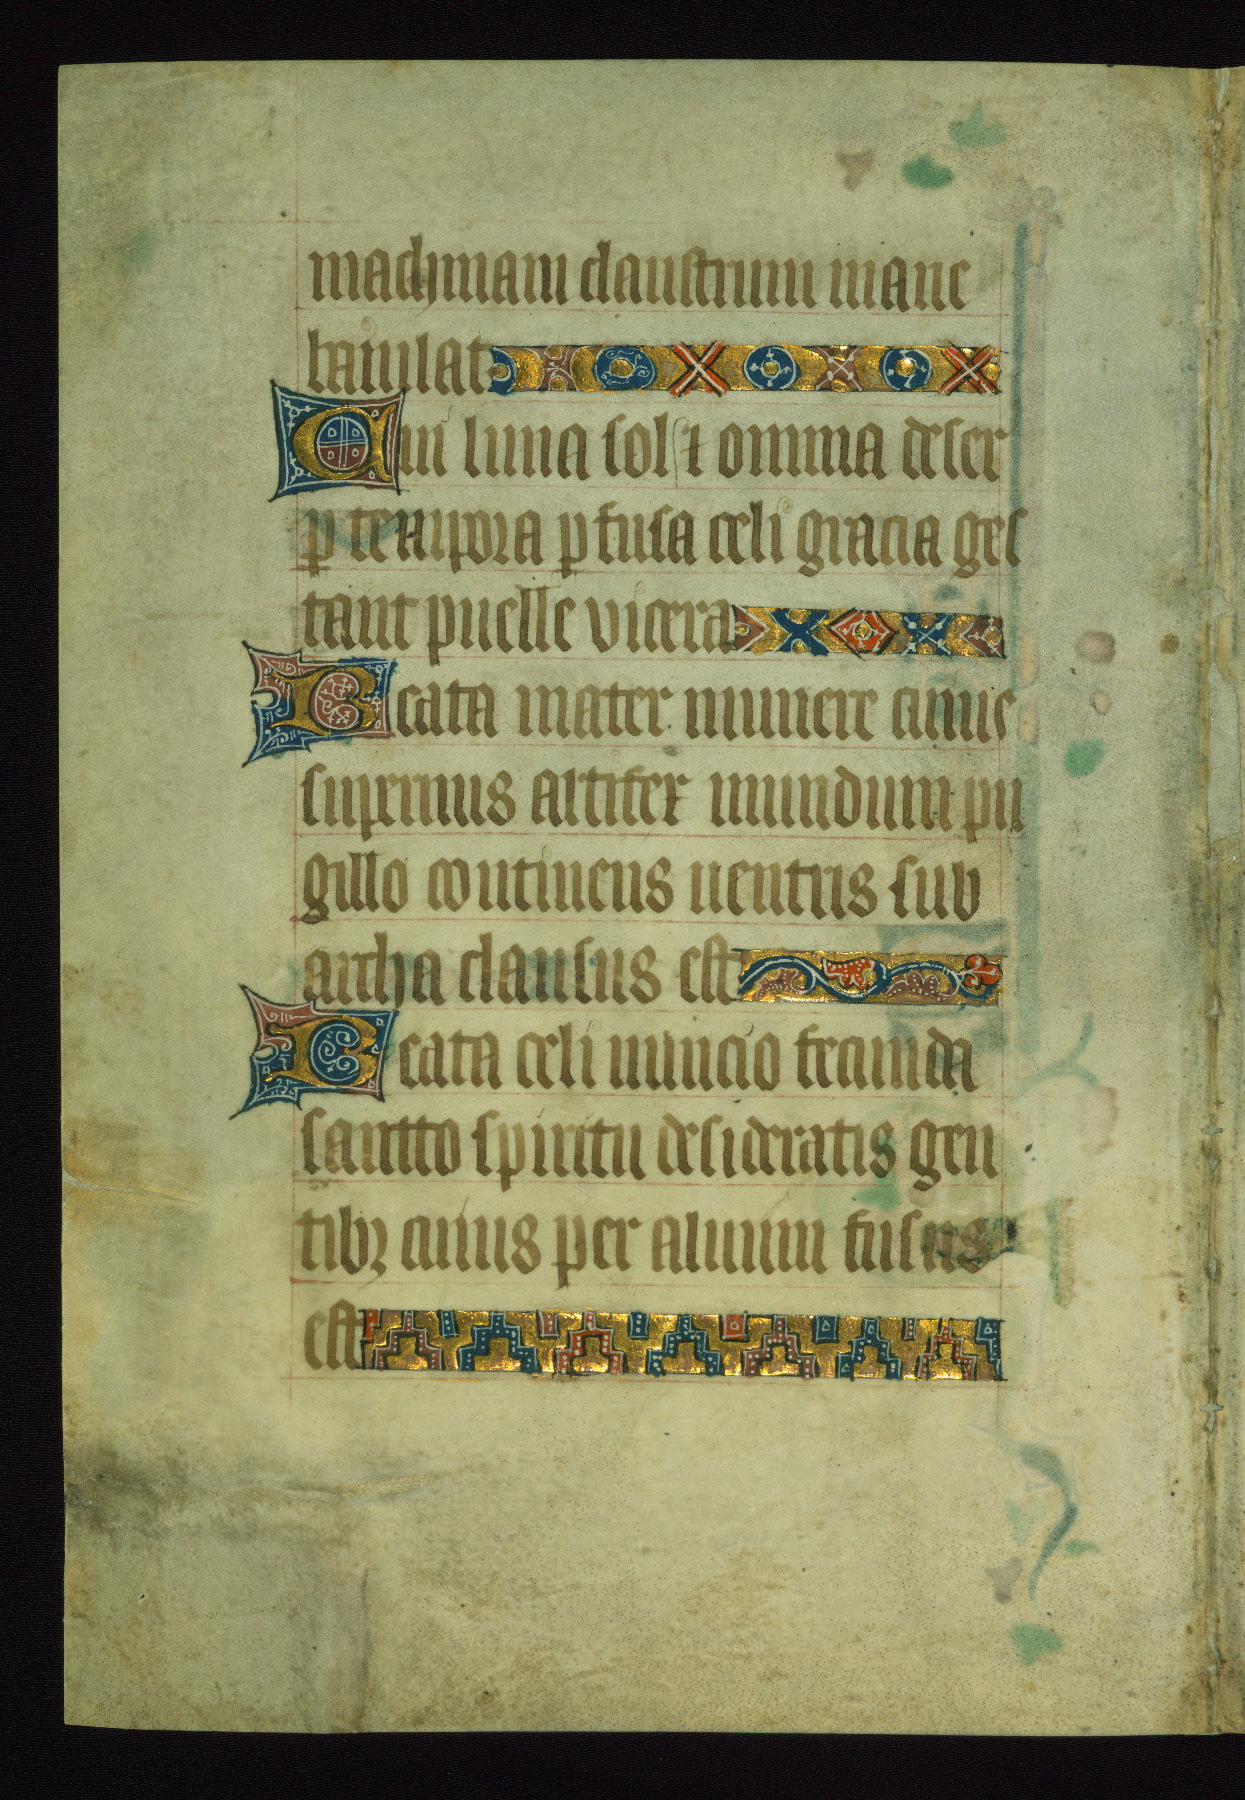 machinam claustrum marie
baiulat
Cui luna sol ⁊ omnia deser
p tempora pfusa celi gracia ges
tant puelle viscera
Beata mater munere cuius
supernus artifex mundum pu
gillo continens uentris sub
archa clausus est
Beata celi nuncio fecunda
santto spiritu desideratis gen
tibꝫ cuius per aluum fusus
est